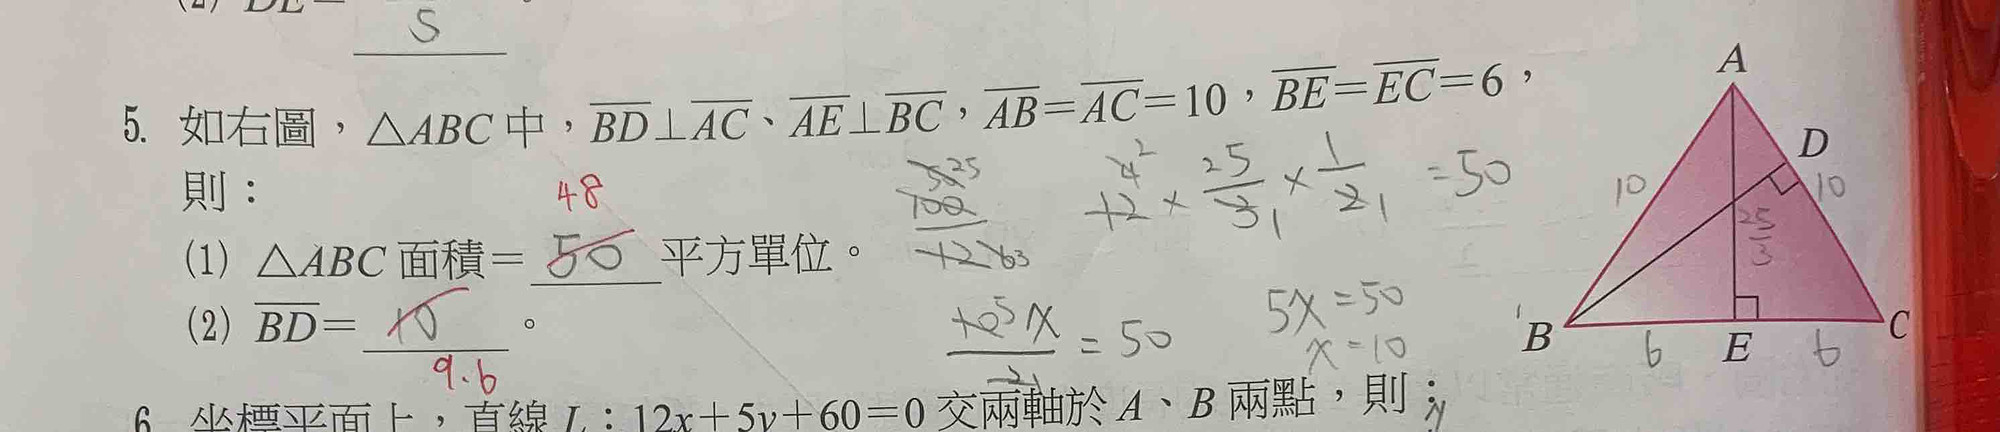 (2) DE=
5
5. 如右圖，△ABC中，BD⊥AC、AE⊥BC，AB=AC=10，BE=EC=6，
則：
48
(1) △ABC 面積= 50 平方單位。
(2) BD= 10 。
9.6
50 25
100
12 6 3
4 2
12 × 25/3 1 × 1/2 1 = 50
10 5 x / 2 1 = 50
5x=50
x=10
A
D
10
10
25/3
B
E
C
6
6
6. 坐標平面上，直線 L：12x+5y+60=0 交兩軸於 A、B 兩點，則：
y